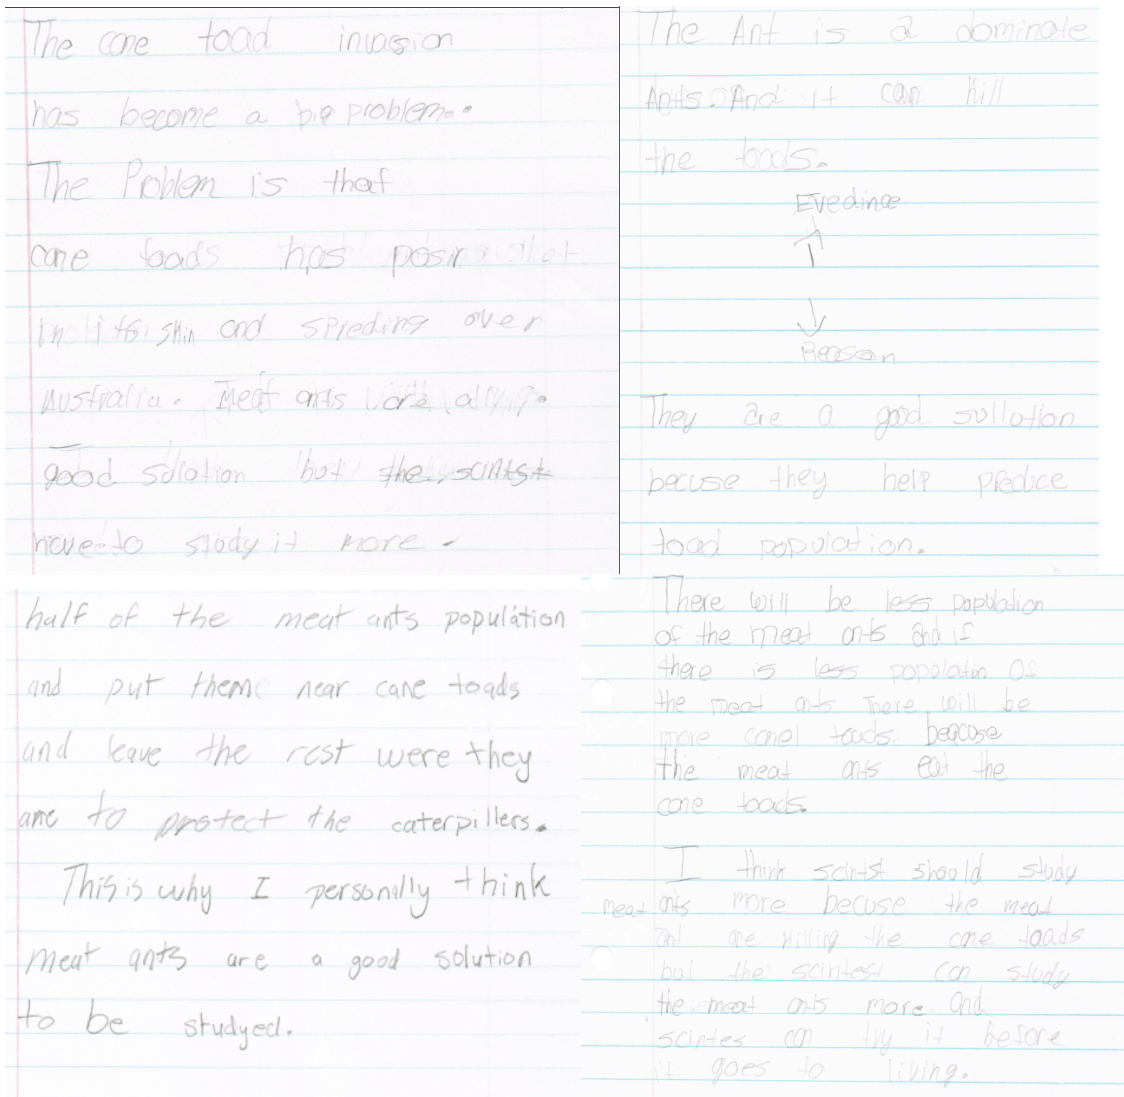 The cane toad invasion
has become a big problem.
The Problem is that
cane toads has posin
in its skin and spreding over
Australia. Meat ants
good solotion but the scintst
have to study it more.
The Ant is a dominate
Ants. And it can kill
the toads.
Evedince
Reason
They are a good sullotion
becuse they help preduce
toad population.
half of the meat ants population
and put them near cane toads
and leave the rest were they
are to protect the caterpillers.
This is why I personally think
meat ants are a good solution
to be studyed.
There will be less population
of the meat ants and if
there is less popolatin of
the meat ants There will be
more cane toads. beacuse
the meat ants eat the
cane toads.
I think scintst should study
meat ants more becuse the meat
ant are killing the cane toads
but the scintest can study
the meat ants more and
scintes can try it before
it goes to living.